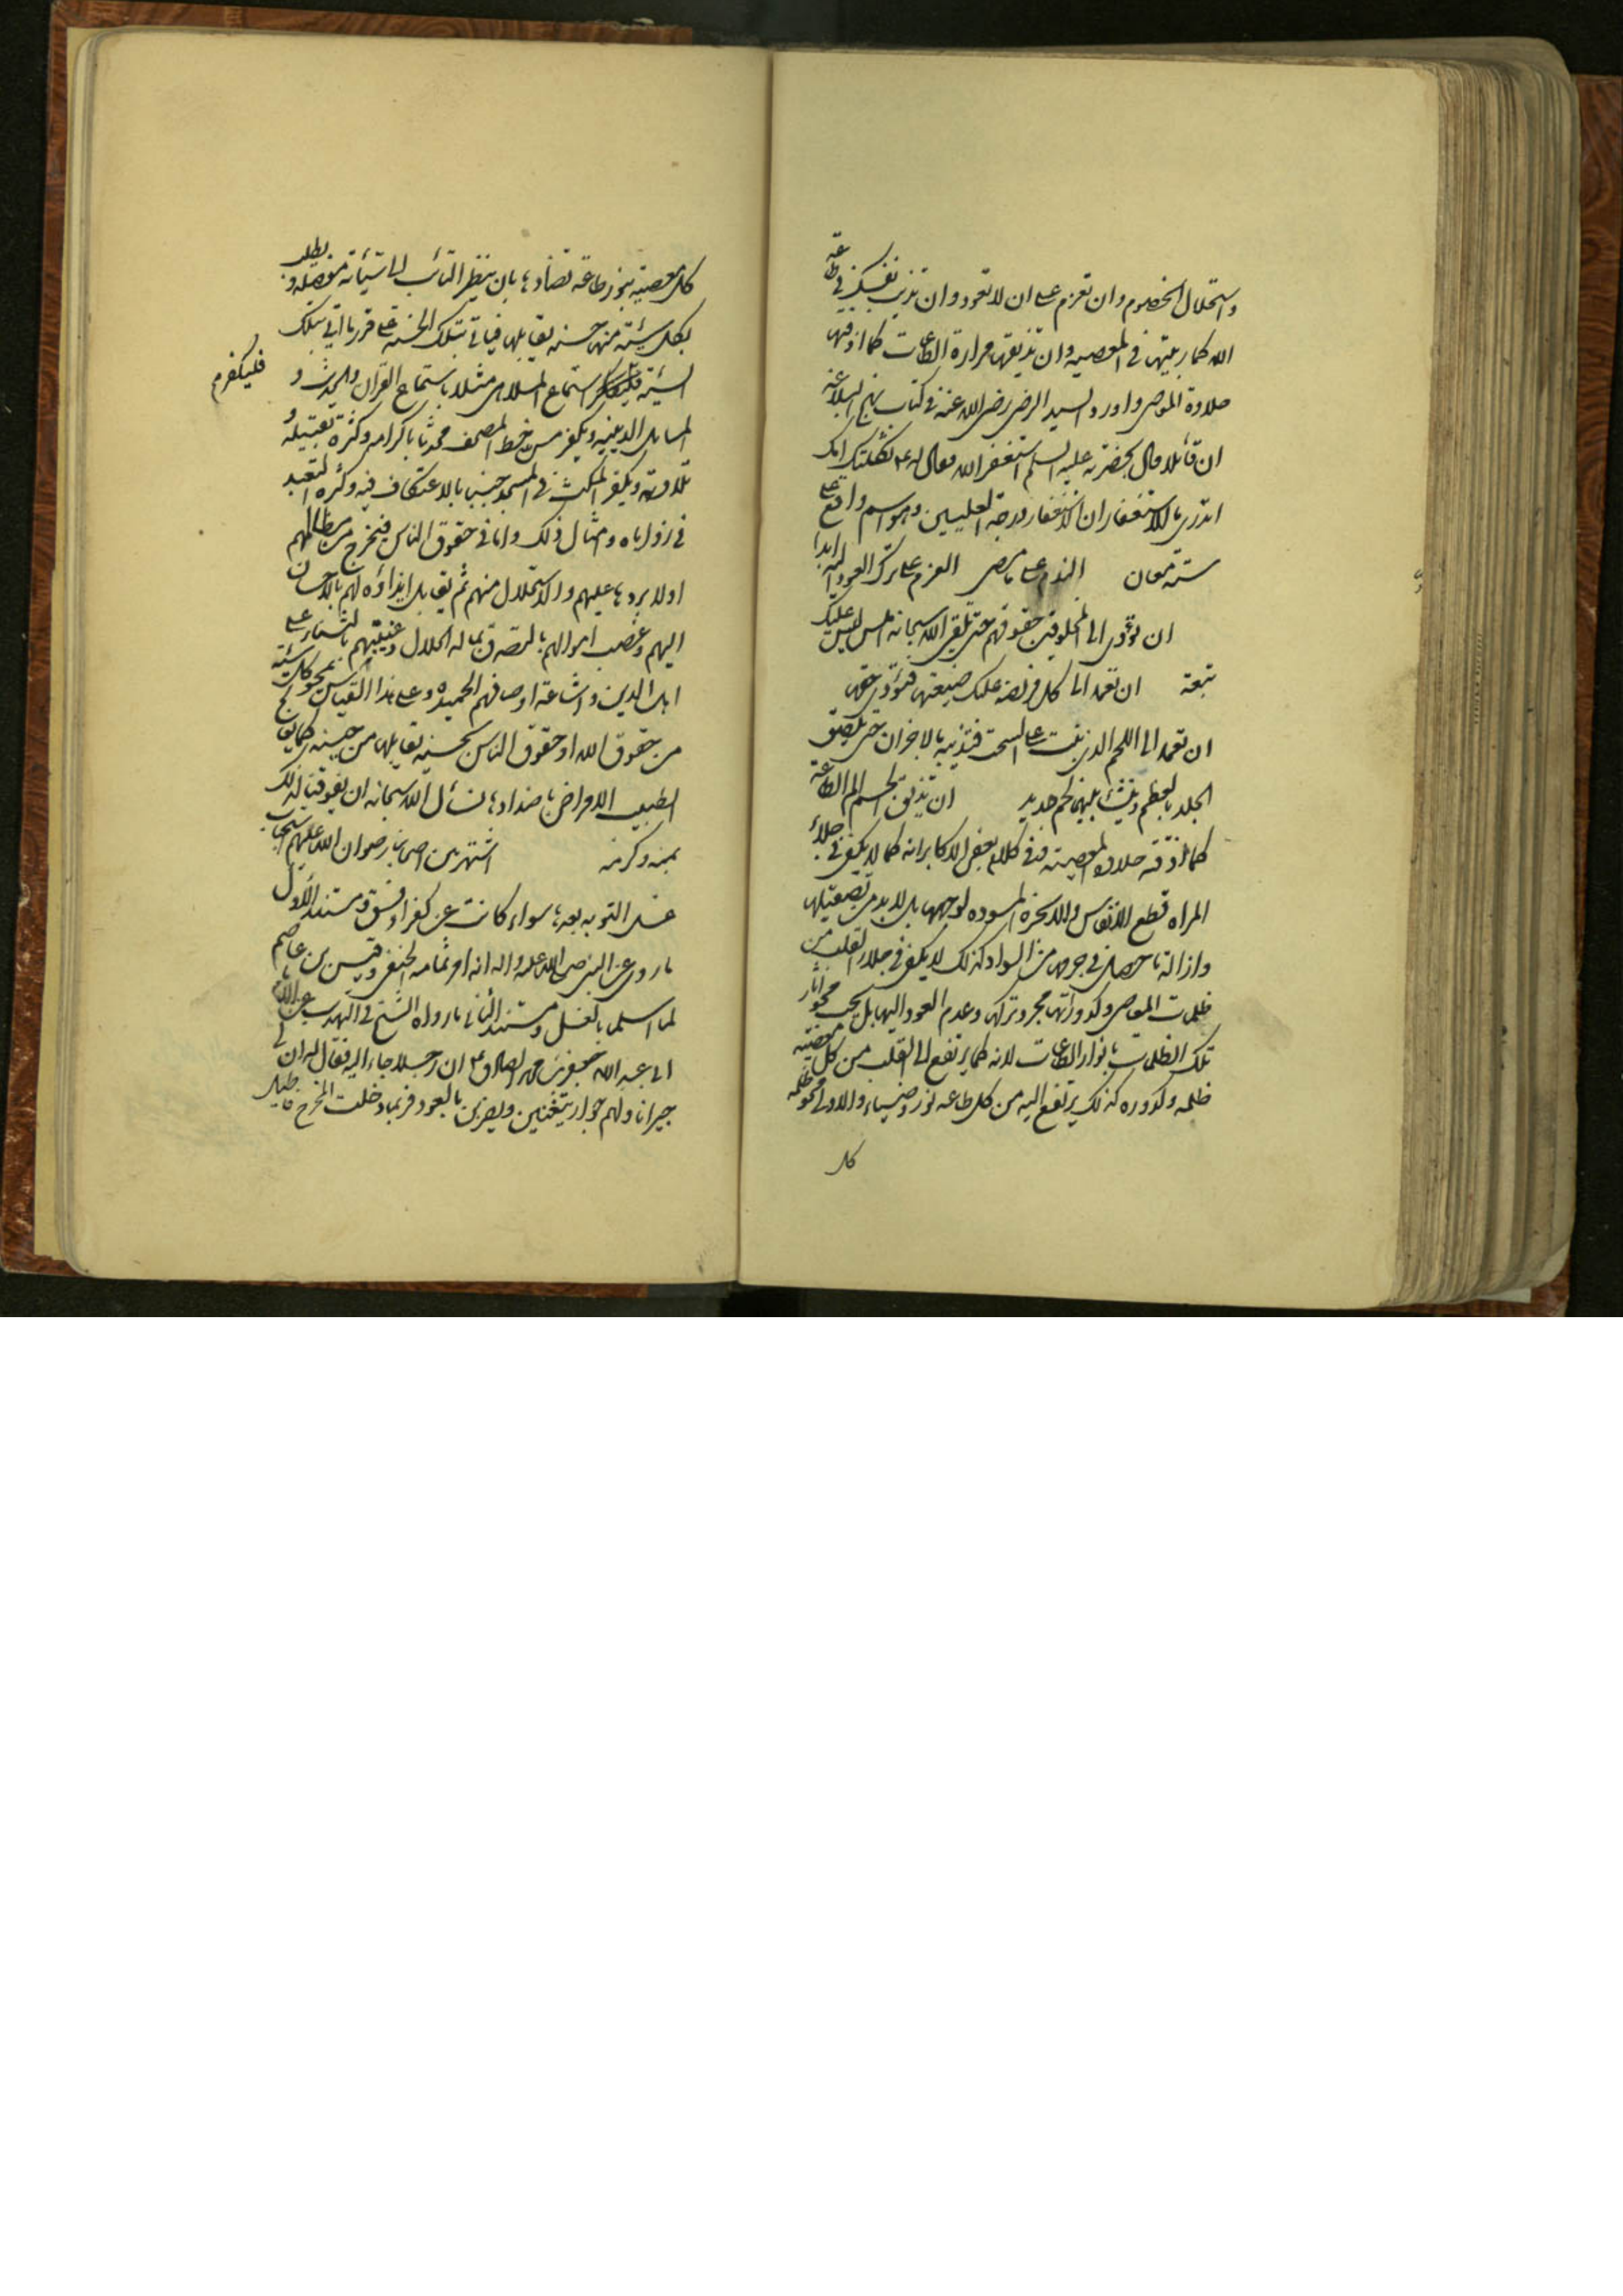 واستحلال الخصوم وان تعزم على ان لا تعود وان تذيب نفسك فى طاعة
الله كما ربيتها فى المعصية وان تذيقها مرارة الطاعات كما اذقتها
حلاوة المعاصى واورد السيد الرضى رضى الله عنه فى كتاب نهج البلاغة
ان قائلا قال بحضرته عليه السلم استغفر الله فقال له ع ثكلتك امك
اتدرى ما الاستغفار ان الاستغفار درجة العليين وهو اسم واقع على
ستة معان الندم على ما مضى العزم على ترك العود اليه ابدا
ان تؤدى الى المخلوقين حقوقهم حتى تلقى الله سبحانه املس ليس عليك
تبعة ان تعمد الى كل فريضة عليك ضيعتها فتؤدى حقها
ان تعمد الى اللحم الذى نبت على السحت فتذيبه بالاحزان حتى يلصق
الجلد بالعظم وينشأ بينهما لحم جديد ان تذيق الجسم الم الطاعة
كما اذقته حلاوة المعصية وفى كلام بعض الاكابر انه كما لا يكفى فى جلاء
المراة قطع الانفاس والابخرة المسودة لوجهها بل لا بد من تصقيلها
وازالة ما حصل فى جرمها من السواد كذلك لا يكفى فى جلاء القلب من
ظلمات المعاصى وكدوراتها مجرد تركها وعدم العود اليها بل يجب محو اثار
تلك الظلمات بانوار الطاعات لانه كما يرتفع الى القلب من كل معصية
ظلمة وكدورة كذلك يرتفع اليه من كل طاعة نور وضياء والاولى محو ظلمة
كل
كل معصية بنور طاعة تضادها بان ينظر التائب الى سيئاته مفصلة ويطلب
لكل سيئة منها حسنة تقابلها فياتى بتلك الحسنة على قدر ما اتى بتلك
السيئة فيكفر استماع الملاهى مثلا باستماع القران والحديث و
فليكفرم
المسايل الدينية ويكفر مس خط المصحف محدثا باكرامه وكثرة تقبيله و
تلاوته ويكفر المكث فى المسجد جنبا بالاعتكاف فيه وكثرة التعبد
فى زواياه وامثال ذلك واما فى حقوق الناس فيخرج من مظالمهم
اولا بردها عليهم والاستحلال منهم ثم يقابل ايذاؤه لهم بالاحسان
اليهم وغصب اموالهم بالتصدق بماله الحلال وغيبتهم بالثناء على
اهل الدين واشاعة اوصافهم الحميدة وعلى هذا القياس يمحو كل سيئة
من حقوق الله او حقوق الناس بحسنة تقابلها من جنسها كما يعالج
الطبيب الامراض باضدادها نسأل الله سبحانه ان يوفقنا لذلك
بمنه وكرمه اشتهر بين اصحابنا رضوان الله عليهم استحباب
غسل التوبة بعدها سواء كانت عن كفر او فسق ومستند الاول
ما روى عن النبى صلى الله عليه واله انه امر ثمامة الحنفى وقيس بن عاصم
لما اسلما بالغسل ومستند الثانى ما رواه الشيخ فى التهذيب عن
ابى عبد الله جعفر بن محمد الصادق ع ان رجلا جاء اليه فقال له ان لى
جيرانا ولهم جوار يتغنين ويضربن بالعود فربما دخلت المخرج فاطيل